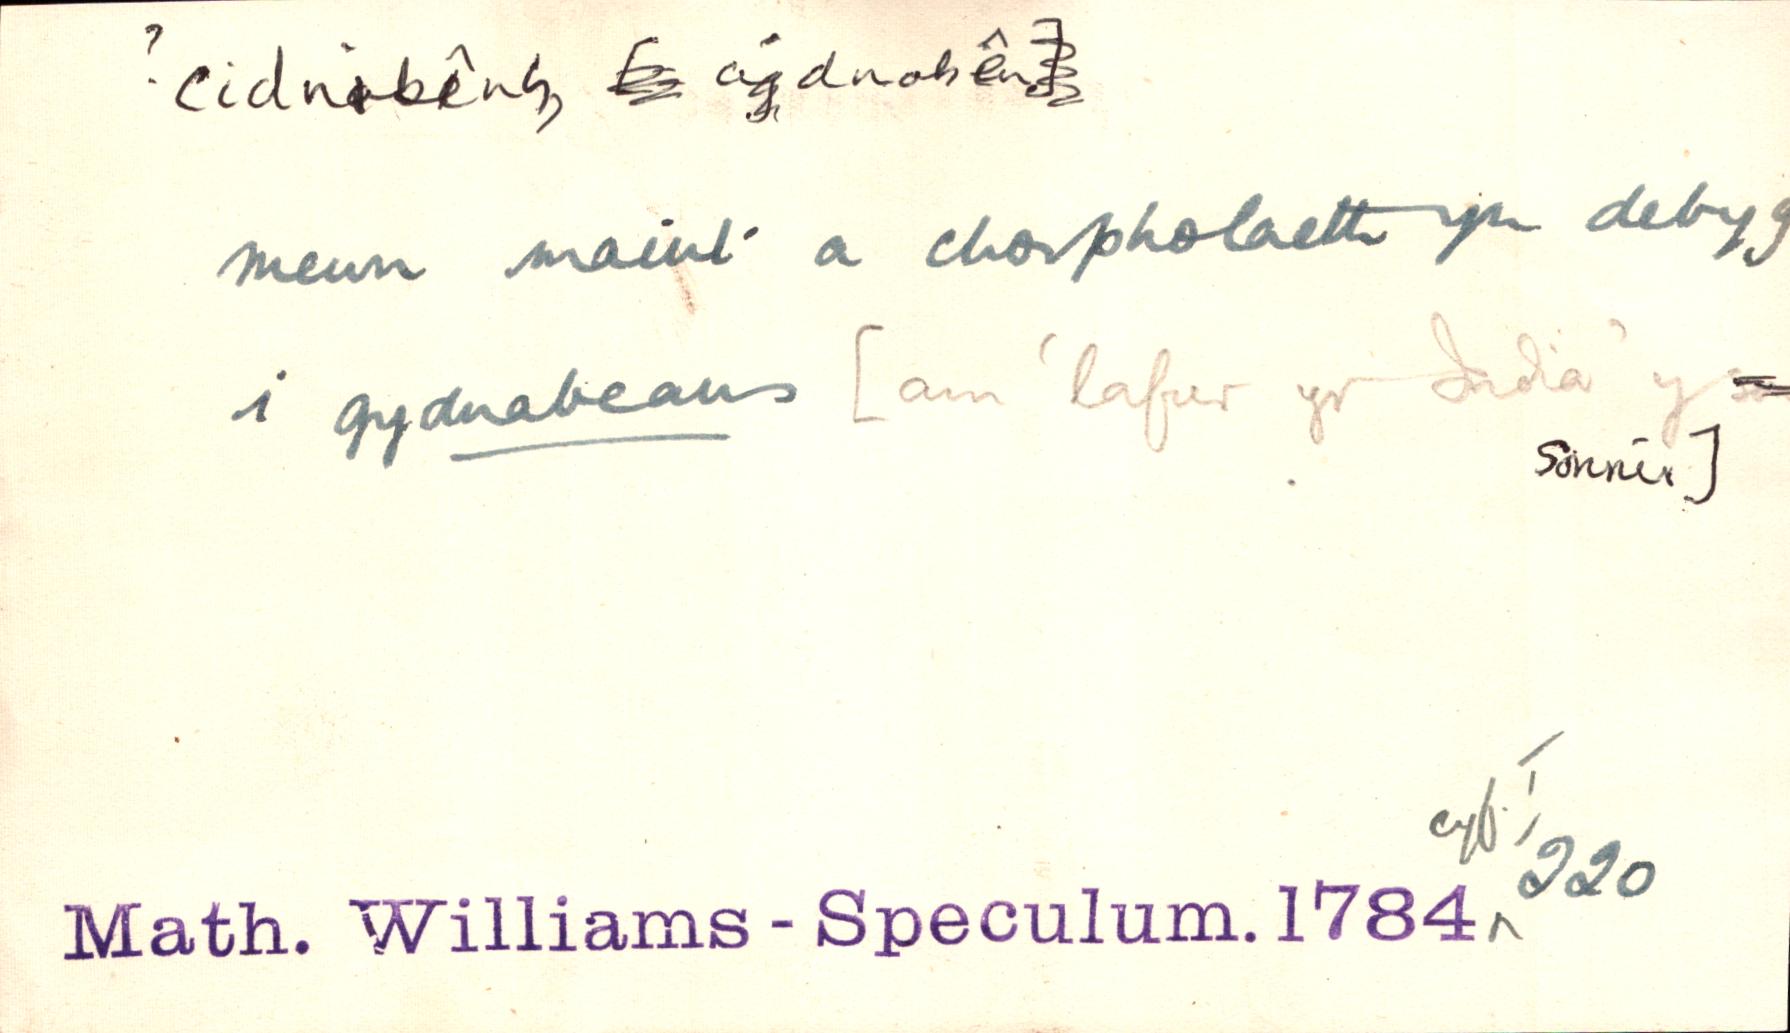 ? cidnabêns, cydnabên
meun maint a chorpholaeth yn debyg
i gydnabeans [am 'lafur yr India' y
sonnir]
cyf. I,
Math. Williams - Speculum. 1784 ^ 220